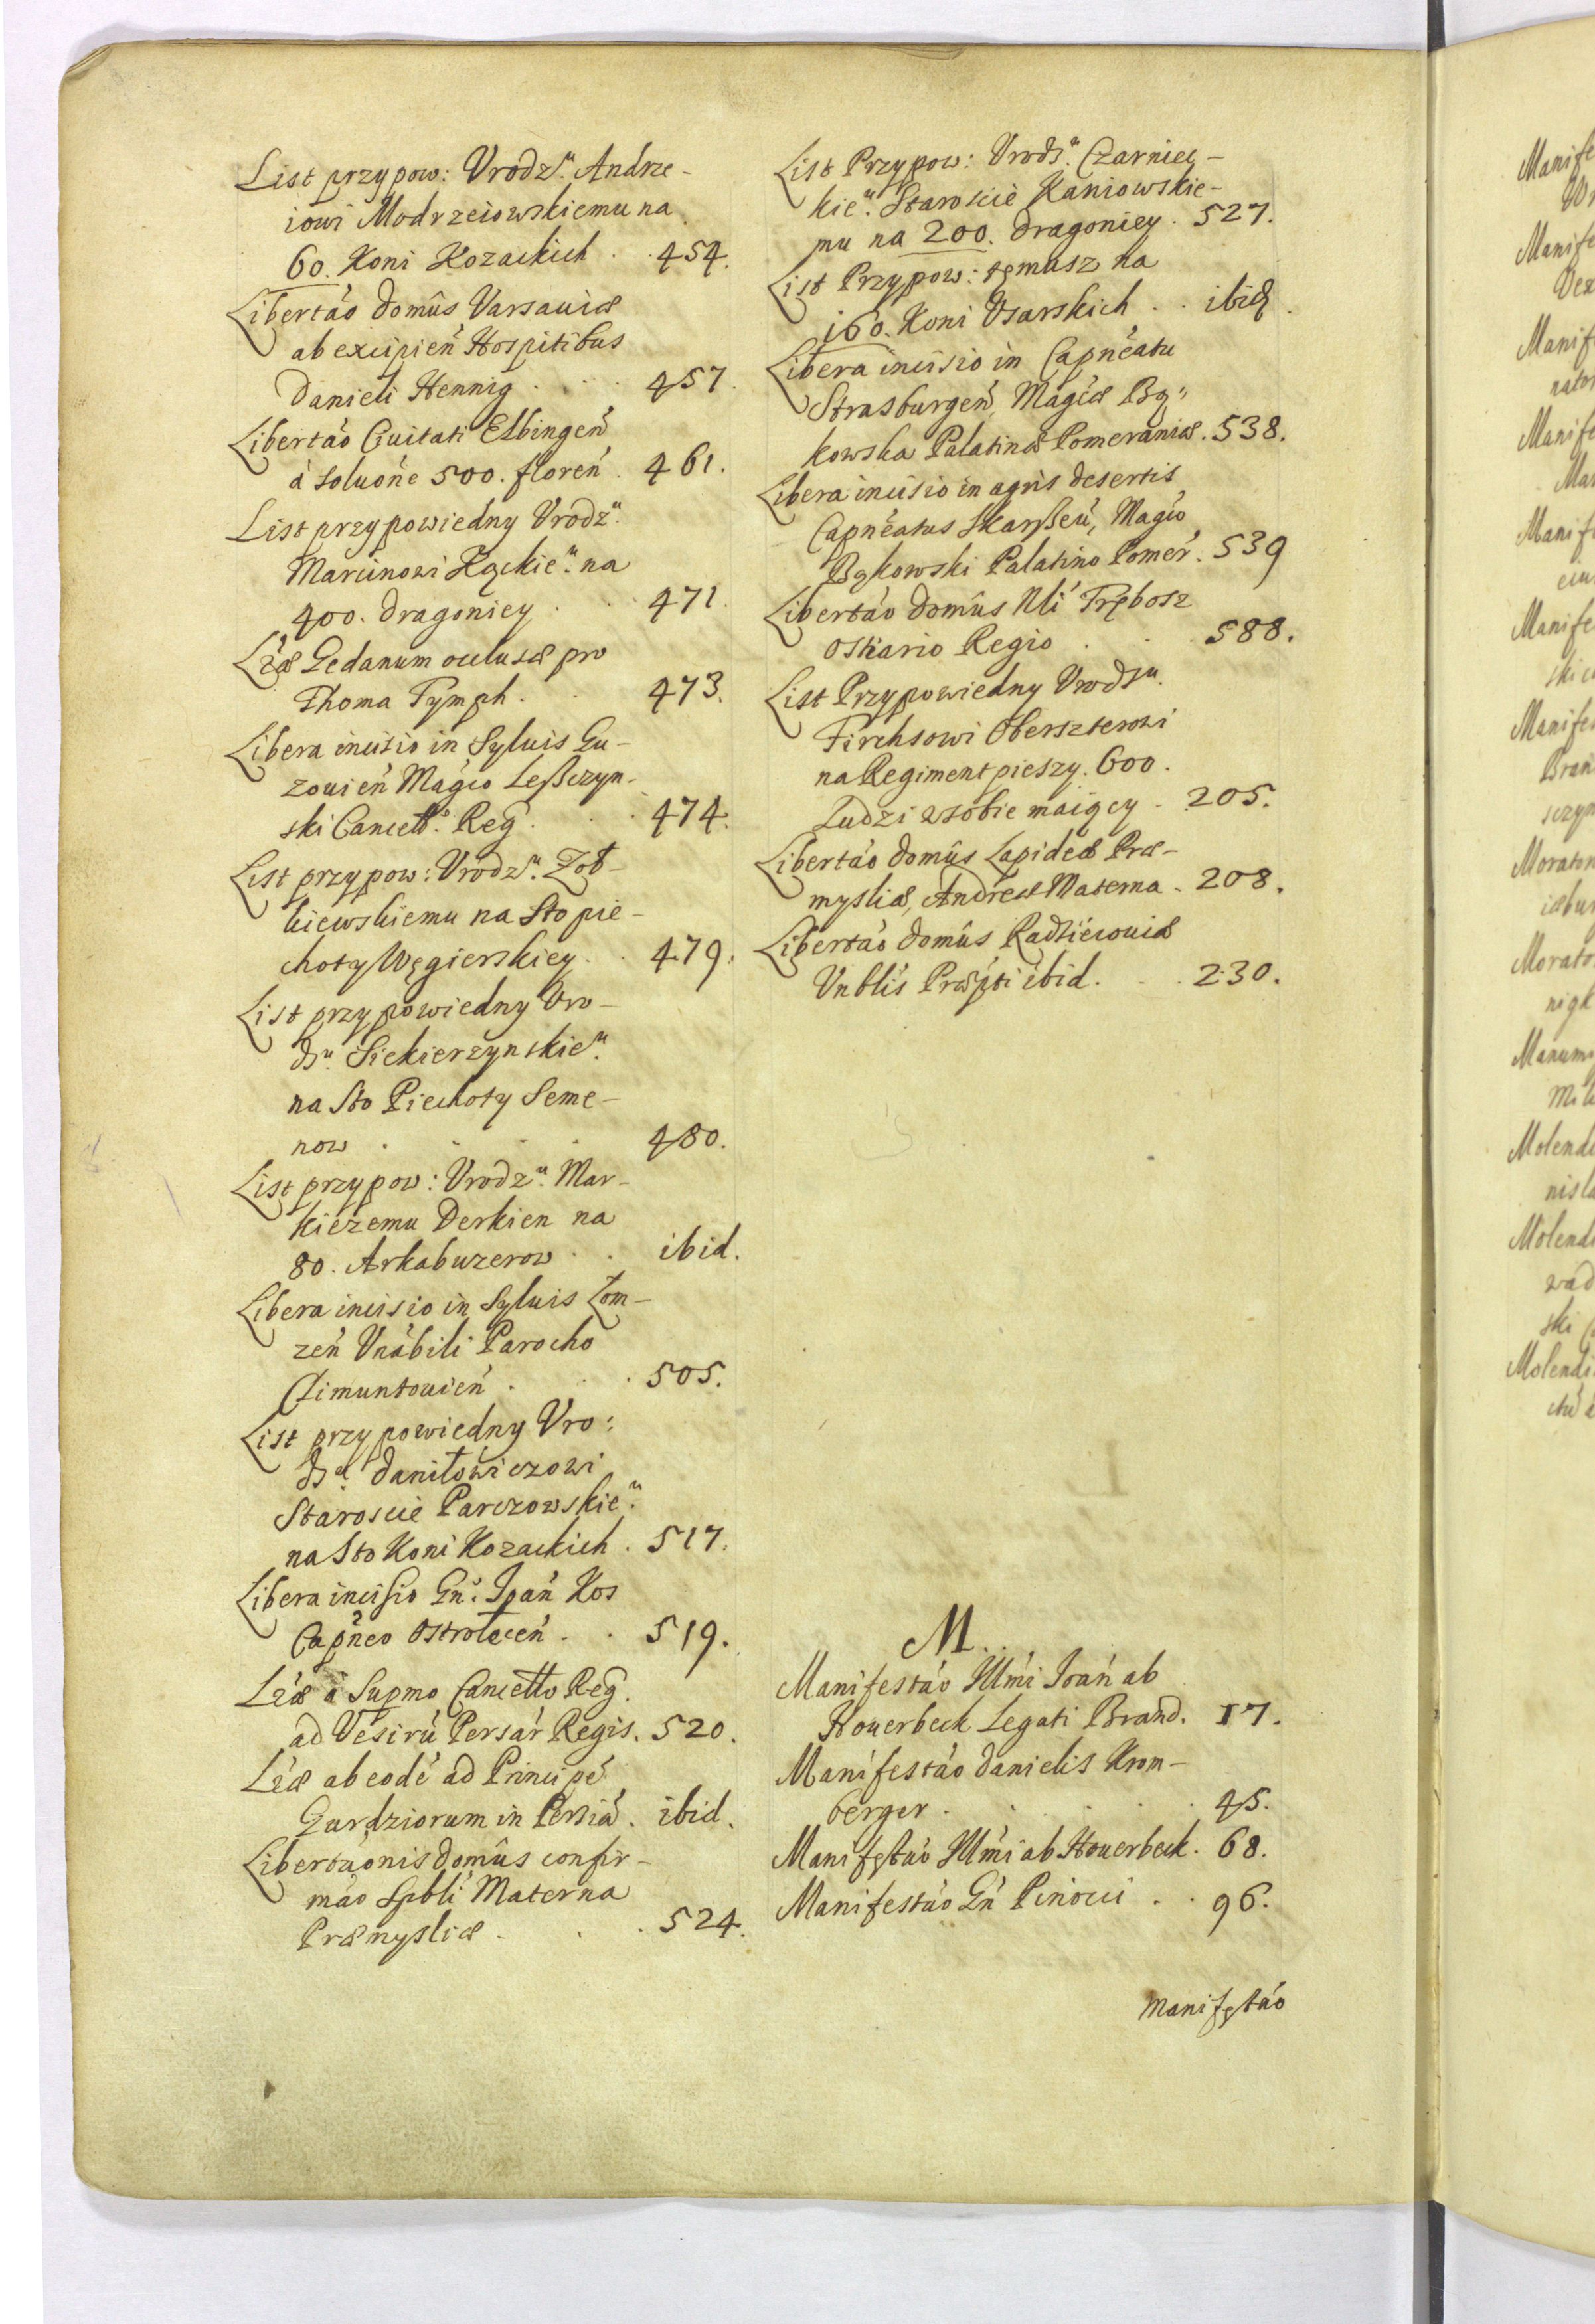 List przypow: Vrodzu. Andrze-
iowi Modrzeiowskiemu na
60. Koni Kozackich . . 454.
Libertáo Domûs Varsauiæ
ab excipień Hospitibus
Danieli Hennig . . . 457.
Libertáo Ciuitati Elbingeń
à soluóne 500. floreń . 461.
List przypowiedny Vrodzu.
Marcinowi Kąckieu. na
400. Dragoniey . . 471.
Lræ Gedanum occlusæ pro
Thoma Tymph . . 473.
Libera incisio in Syluis Gu-
zouień Mágco Leßczyn-
ski Cancello. Reg . . 474.
List przypow: Vrodzu. Żoł-
kiewskiemu na Sto pie-
choty Węgierskiey . . 479.
List przypowiedny Vro-
dzu. Siekierzynskieu.
na Sto Piechoty Seme-
now . . . 480.
List przypow: Vrodzu. Mar-
kiezemu Derkien na
80. Arkabuzerow . . ibid.
Libera incisio in Syluis Łom-
zeń Vnábili Parocho
Czimuntouień . . 505.
List przypowiedny Vro:
dzu. Daniłowiczowi
Staroscie Parczowskieu.
na Sto Koni Kozackich . 517.
Libera incisio Gno. Ioań Kos
Capneo Ostrołeceń . . 519.
Lræ à Supmo Cancello Reg.
ad Vesirú Persár Regis. 520.
Lræ ab eodé ad Principé
Gurdziorum in Persiá . ibid.
Libertaónis domûs confir-
máo Spbli Materna
Præmysliæ . . . 524.
List Przypow: Vrodzu. Czarniec-
kieu. Staroscie Kaniowskie-
mu na 200. Dragoniey . 527.
List Przypow: temusz na
160. Koni Vsarskich . . ibid.
Libera incisio in Capnéatu
Strasburgeń, Mágcæ Bą:
kowska Palatinæ Pomeraniæ. 538.
Libera incisio in agris desertis
Capnéatus Skarßeú, Magco
Bąkowski Palatino Pomer. 539
Libertáo domûs Nli Trębosz
Ostiario Regio . . 588.
List Przypowiedny Vrodzu.
Firchsowi Obersterowi
na Regiment pieszy. 600.
Ludzi w sobie maiący . 205.
Libertáo domûs Lapideæ Præ-
mysliæ, Andreæ Materna . 208.
Libertáo domûs Radzieiouiæ
Vnblis Præpti ibid. . . 230.
M.
Manifestáo Illmi Ioań ab
Houerbeck Legati Brand. 17.
Manifestáo Danielis Krom-
berger . . . . 45.
Manifestáo Illmi ab Houerbeck. 68.
Manifestáo Gn Pinocci . . 96.
Manifestáo